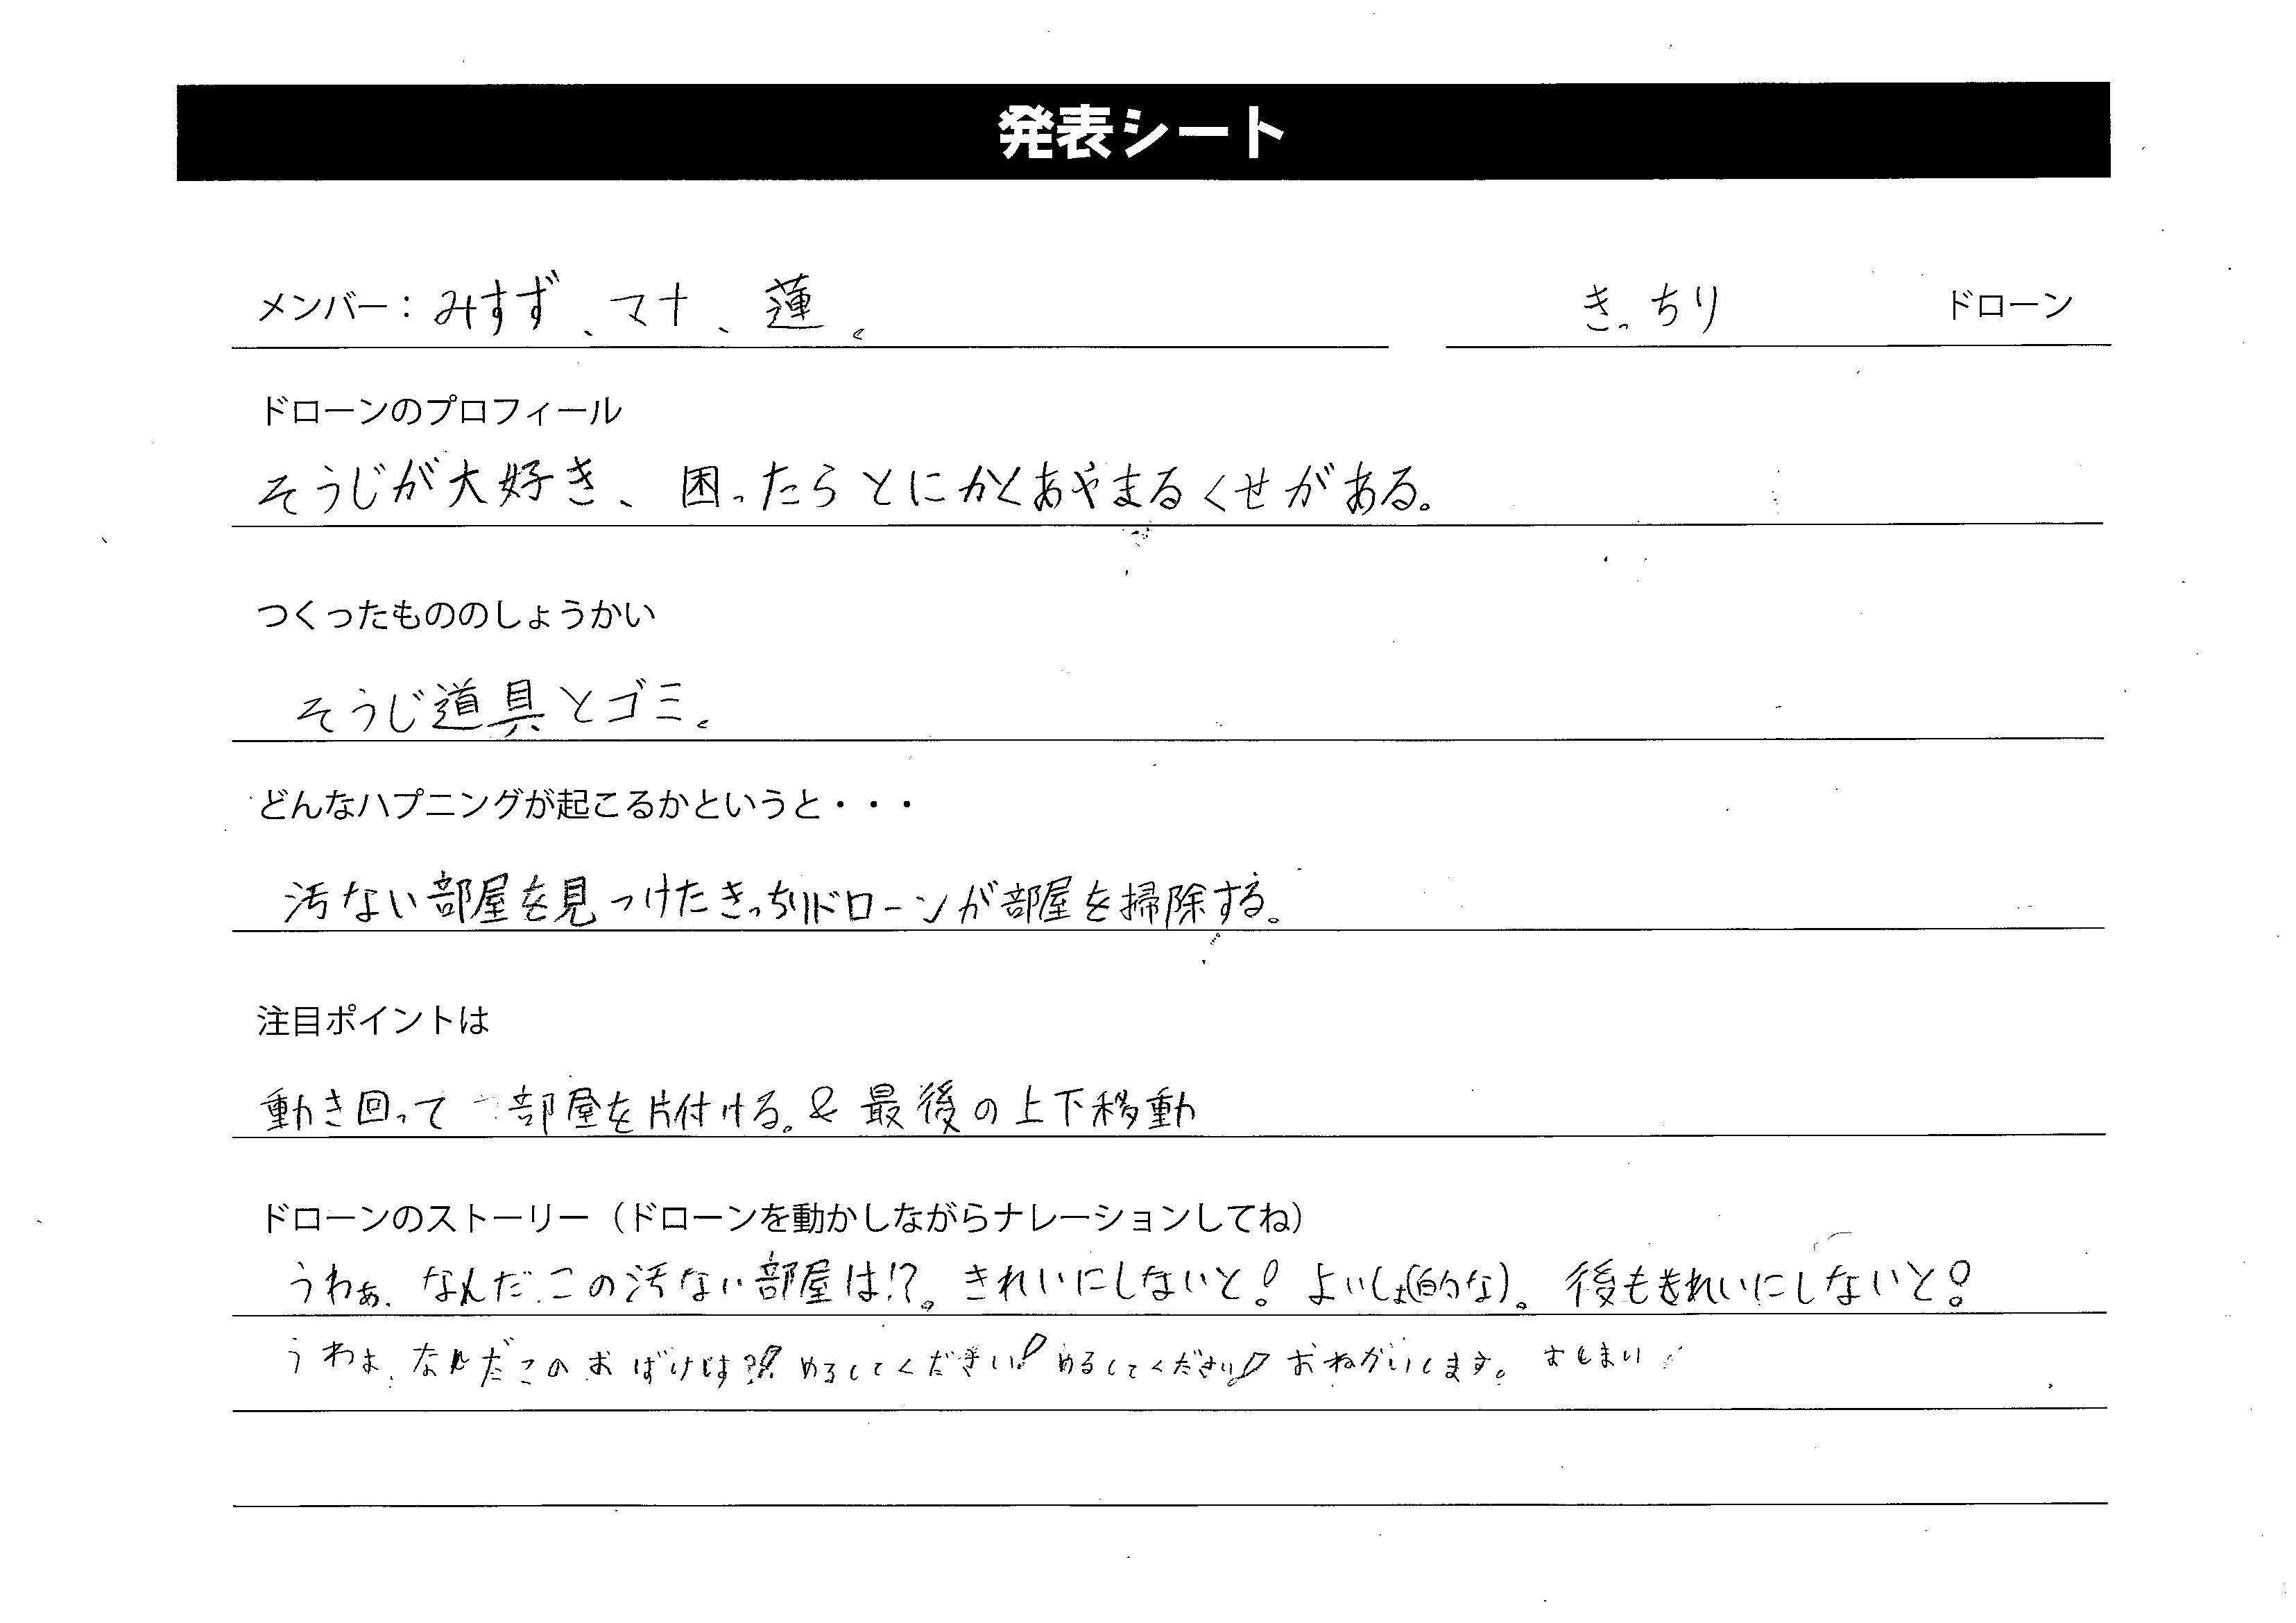 発表シート
メンバー：みすず、マナ、蓮。 きっちり ドローン
ドローンのプロフィール
そうじが大好き、困ったらとにかくあやまるくせがある。
つくったもののしょうかい
そうじ道具とゴミ。
どんなハプニングが起こるかというと・・・
汚ない部屋を見つけたきっちりドローンが部屋を掃除する。
注目ポイントは
動き回って部屋を片付ける。& 最後の上下移動
ドローンのストーリー（ドローンを動かしながらナレーションしてね）
うわぁ、なんだこの汚ない部屋は!?。きれいにしないと! よいしょ(的な)。後もきれいにしないと!
うわぁ、なんだこのおばけは?! ゆるしてください! ゆるしてください! おねがいします。おしまい